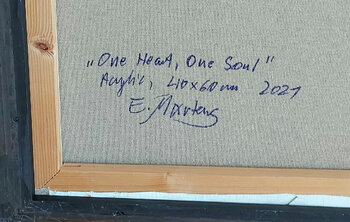 „One Heart, One Soul"
Acrylic, 40x60cm 2021
E. Martens